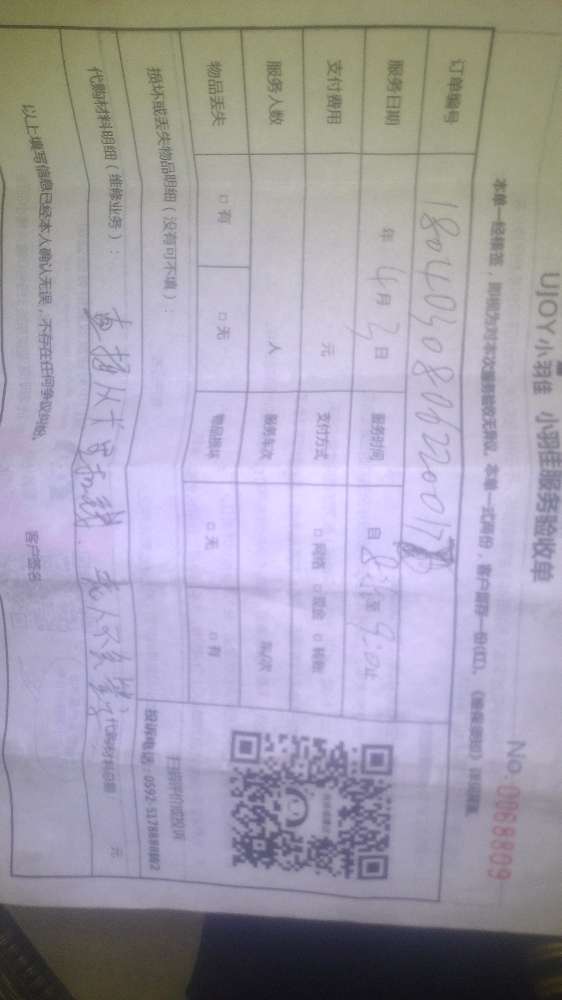 UJOY小羽佳 小羽佳服务验收单
No. 0068809
本单一经接签，则视为对本次服务验收无异议。本单一式两份，客户留存一份(红)。
订单编号 180403080622001
服务日期 年 4月 3日 服务时间 自 至 9:04
支付费用 元 支付方式 □网络 □现金 □转账
服务人数 人 服务车次 辆/次
物品丢失 □有 □无 物品损坏 □无 □有
损坏或丢失物品明细（没有可不填）：
扫描评价或投诉
投诉电话：0592-5178888转2
代购材料明细（维修业务）： 代购材料总额： 元
以上填写信息已经本人确认无误，不存在任何争议纠纷。
客户签名